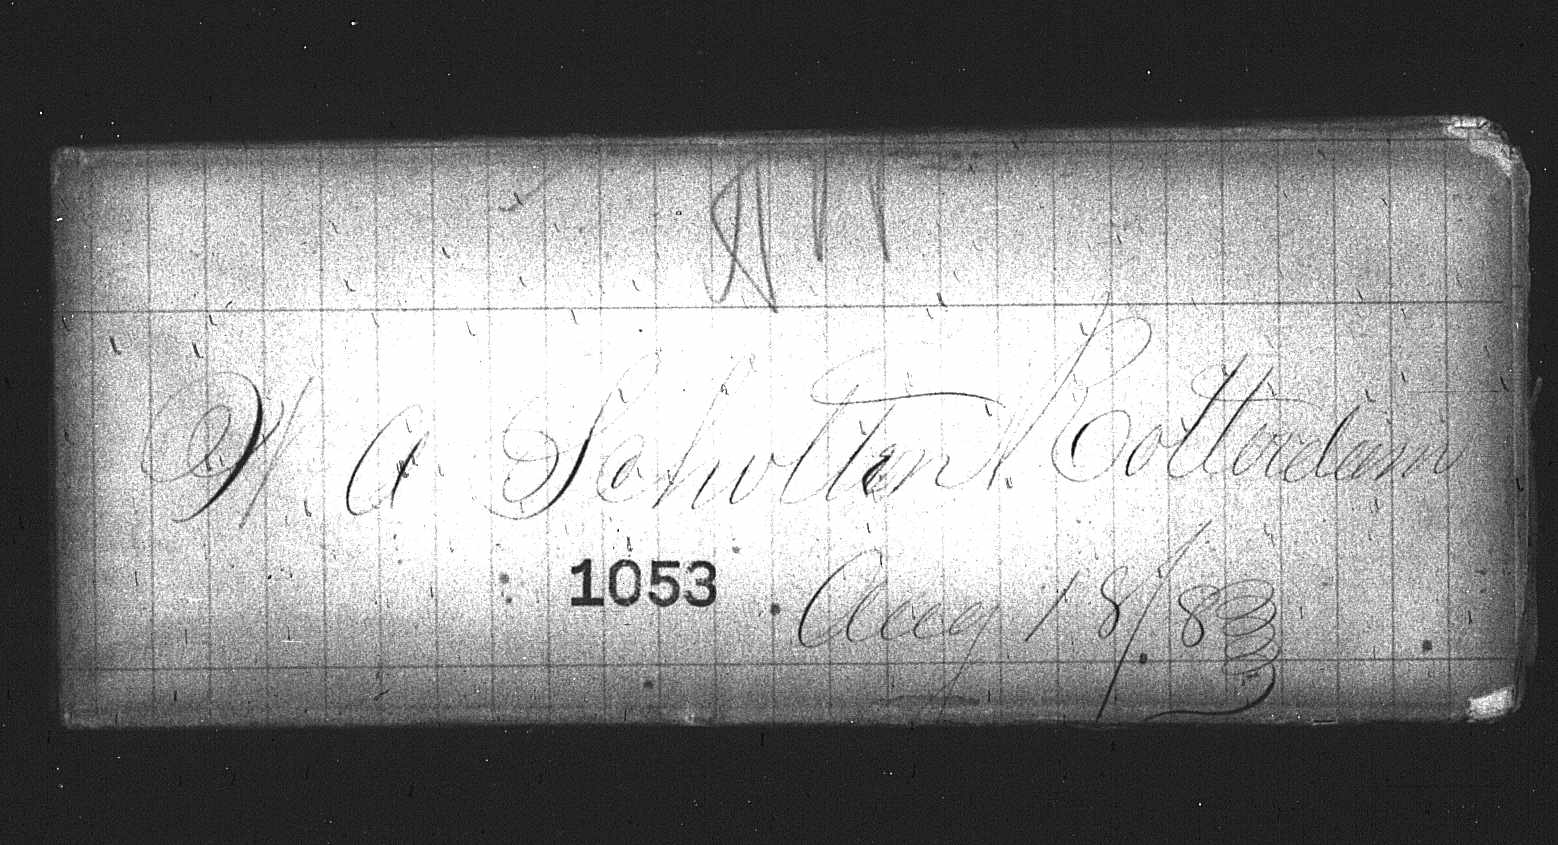 W. A Scholten. Rotterdam
1053
Aug 18/83